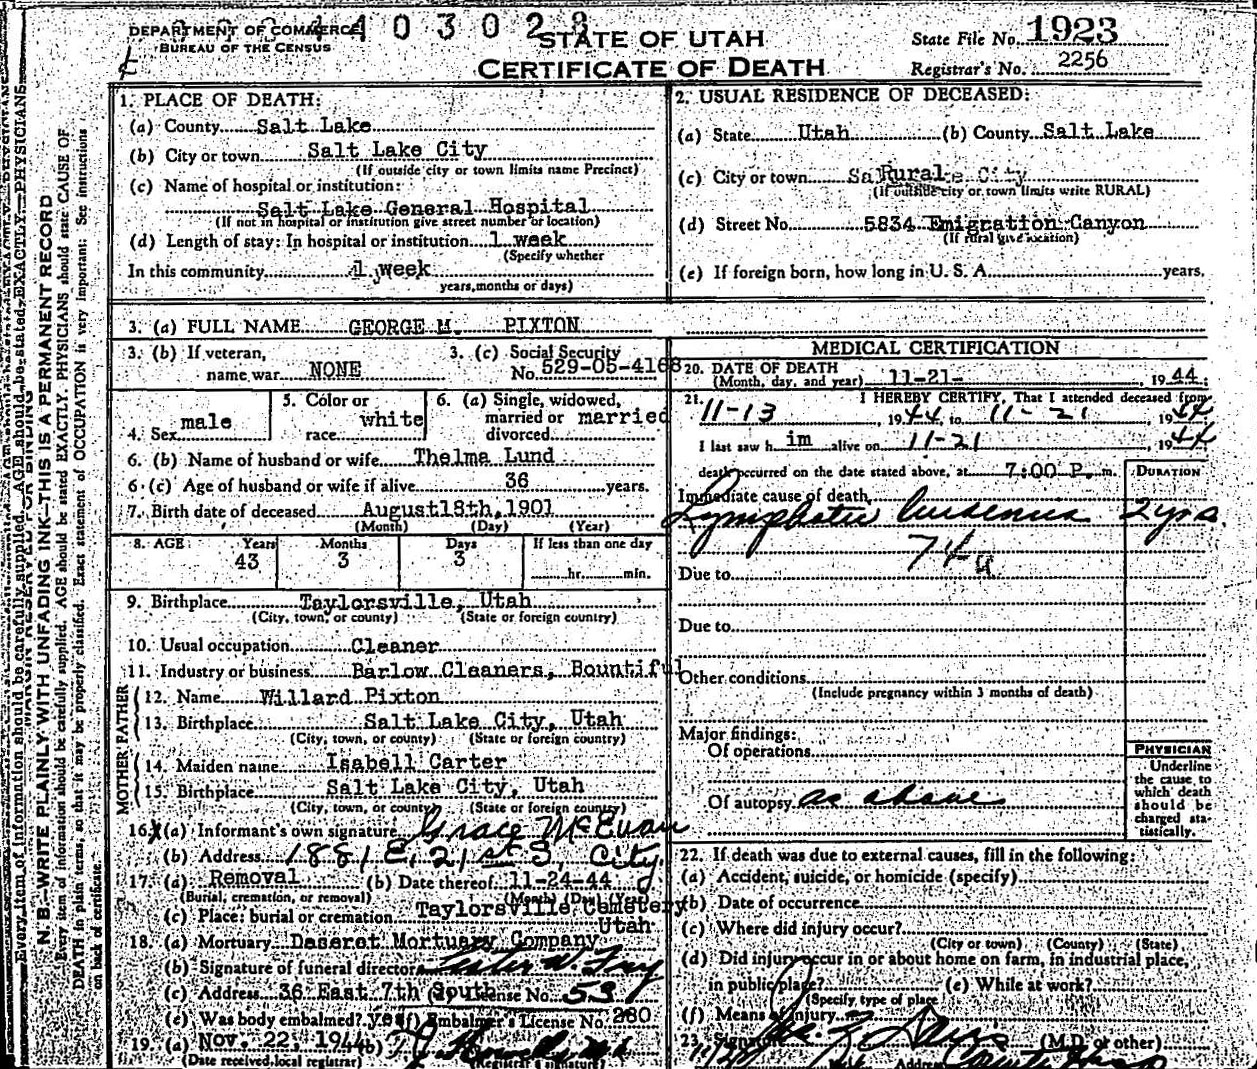 DEPARTMENT OF COMMERCE
BUREAU OF THE CENSUS
STATE OF UTAH
CERTIFICATE OF DEATH
State File No. 1923
Registrar's No. 2256
1. PLACE OF DEATH:
(a) County Salt Lake
(b) City or town Salt Lake City
(If outside city or town limits name Precinct)
(c) Name of hospital or institution:
Salt Lake General Hospital
(If not in hospital or institution give street number or location)
(d) Length of stay: In hospital or institution 1 week
(Specify whether
In this community 1 week
years, months or days)
2. USUAL RESIDENCE OF DECEASED:
(a) State Utah (b) County Salt Lake
(c) City or town Rural
(If outside city or town limits write RURAL)
(d) Street No. 5834 Emigration Canyon
(If rural give location)
(e) If foreign born, how long in U. S. A. years.
3. (a) FULL NAME GEORGE M. PIXTON
3. (b) If veteran, name war NONE
3. (c) Social Security No. 529-05-4168
4. Sex male
5. Color or race white
6. (a) Single, widowed, married or divorced married
6. (b) Name of husband or wife Thelma Lund
6. (c) Age of husband or wife if alive 36 years.
7. Birth date of deceased August 18th, 1901
(Month) (Day) (Year)
8. AGE: Years Months Days If less than one day
43 3 3 hr. min.
9. Birthplace Taylorsville, Utah
(City, town, or county) (State or foreign country)
10. Usual occupation Cleaner
11. Industry or business Barlow Cleaners, Bountiful
FATHER
12. Name Willard Pixton
13. Birthplace Salt Lake City, Utah
(City, town, or county) (State or foreign country)
MOTHER
14. Maiden name Isabell Carter
15. Birthplace Salt Lake City, Utah
(City, town, or county) (State or foreign country)
16. (a) Informant's own signature Grace McEwan
(b) Address 1881 E. 21st S. City
17. (a) Removal (b) Date thereof 11-24-44
(Burial, cremation, or removal) (Month) (Day) (Year)
(c) Place: burial or cremation Taylorsville Cemetery
Utah
18. (a) Mortuary Deseret Mortuary Company
(b) Signature of funeral director
(c) Address 36 East 7th South (d) License No. 53
(e) Was body embalmed? yes (f) Embalmer's License No. 280
19. (a) Nov. 22, 1944 (b)
(Date received local registrar) (Registrar's signature)
MEDICAL CERTIFICATION
20. DATE OF DEATH
(Month, day, and year) 11-21- , 1944.
21. I HEREBY CERTIFY, That I attended deceased from
11-13 , 1944, to 11-21 , 1944
I last saw him alive on 11-21 , 1944
death occurred on the date stated above, at 7:00 P. m.
DURATION
Immediate cause of death
Lymphatic leukemia 2 yrs.
74a
Due to
Due to
Other conditions
(Include pregnancy within 3 months of death)
Major findings:
Of operations
Of autopsy as above
PHYSICIAN
Underline the cause to which death should be charged statistically.
22. If death was due to external causes, fill in the following:
(a) Accident, suicide, or homicide (specify)
(b) Date of occurrence
(c) Where did injury occur?
(City or town) (County) (State)
(d) Did injury occur in or about home on farm, in industrial place,
in public place? (e) While at work?
(Specify type of place)
(f) Means of injury
23. Signature (M.D. or other)
Address
N. B.—WRITE PLAINLY WITH UNFADING INK—THIS IS A PERMANENT RECORD
Every item of information should be carefully supplied. AGE should be stated EXACTLY. PHYSICIANS should state CAUSE OF
DEATH in plain terms, so that it may be properly classified. Exact statement of OCCUPATION is very important. See instructions
on back of certificate.